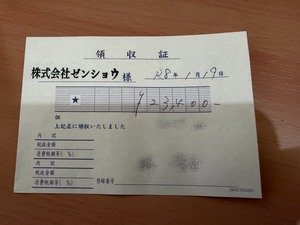 領収証
株式会社ゼンショウ 様 R8年1月19日
★ ¥23,400-
但
上記正に領収いたしました
内訳
税抜金額
消費税額等( %)
内訳
税抜金額
消費税額等( %)
登録番号